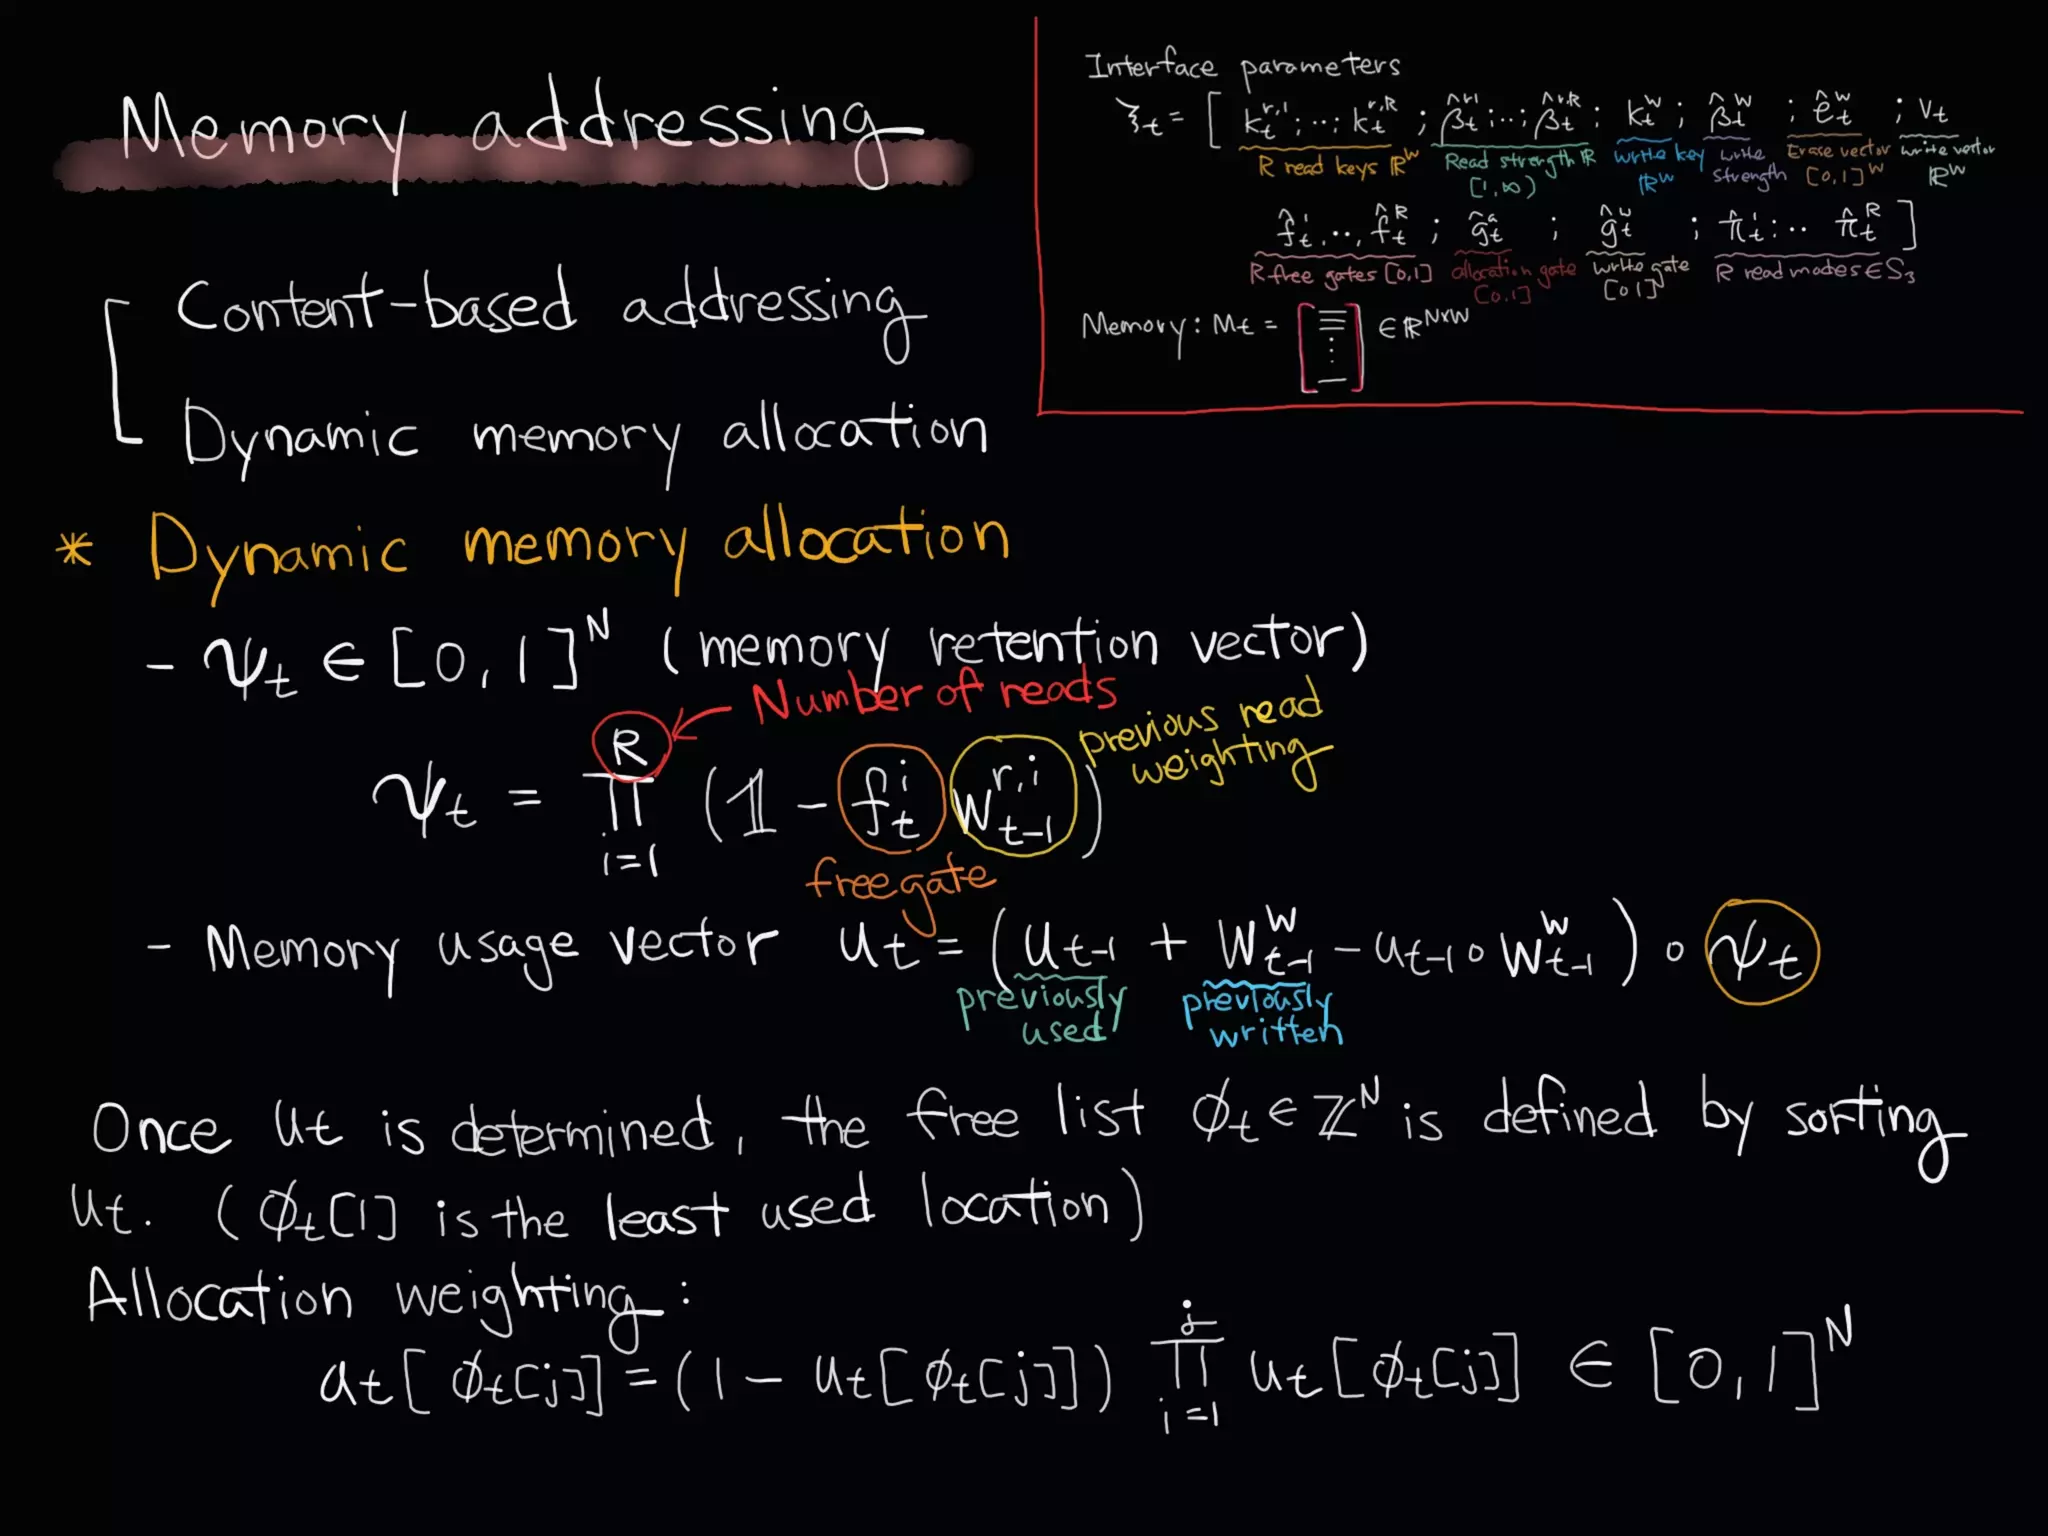 Memory addressing
Content-based addressing
Dynamic memory allocation
Interface parameters
ξt = [ kt^r,1 ; ... ; kt^r,R ; β̂t^r,1 ; ... ; β̂t^r,R ; kt^w ; β̂t^w ; êt^w ; Vt
R read keys ℝ^W Read strength R [1,∞) write key ℝ^W write strength Erase vector [0,1]^W write vector ℝ^W
f̂t^1, .., f̂t^R ; ĝt^a ; ĝt^w ; π̂t^1 : .. π̂t^R ]
R free gates [0,1] allocation gate [0,1] write gate [0 1] R read modes ∈ S3
Memory : Mt = [ ] ∈ ℝ^N×W
* Dynamic memory allocation
- ψt ∈ [0, 1]^N (memory retention vector)
Number of reads
previous read weighting
ψt = ∏_{i=1}^{R} (𝟙 - ft^i W_{t-1}^{r,i})
free gate
- Memory usage vector ut = (ut-1 + W_{t-1}^w - ut-1 ∘ W_{t-1}^w) ∘ ψt
previously used
previously written
Once ut is determined, the free list φt ∈ ℤ^N is defined by sorting
ut. (φt[1] is the least used location)
Allocation weighting :
at[φt[j]] = (1 - ut[φt[j]]) ∏_{i=1}^{j} ut[φt[j]] ∈ [0, 1]^N